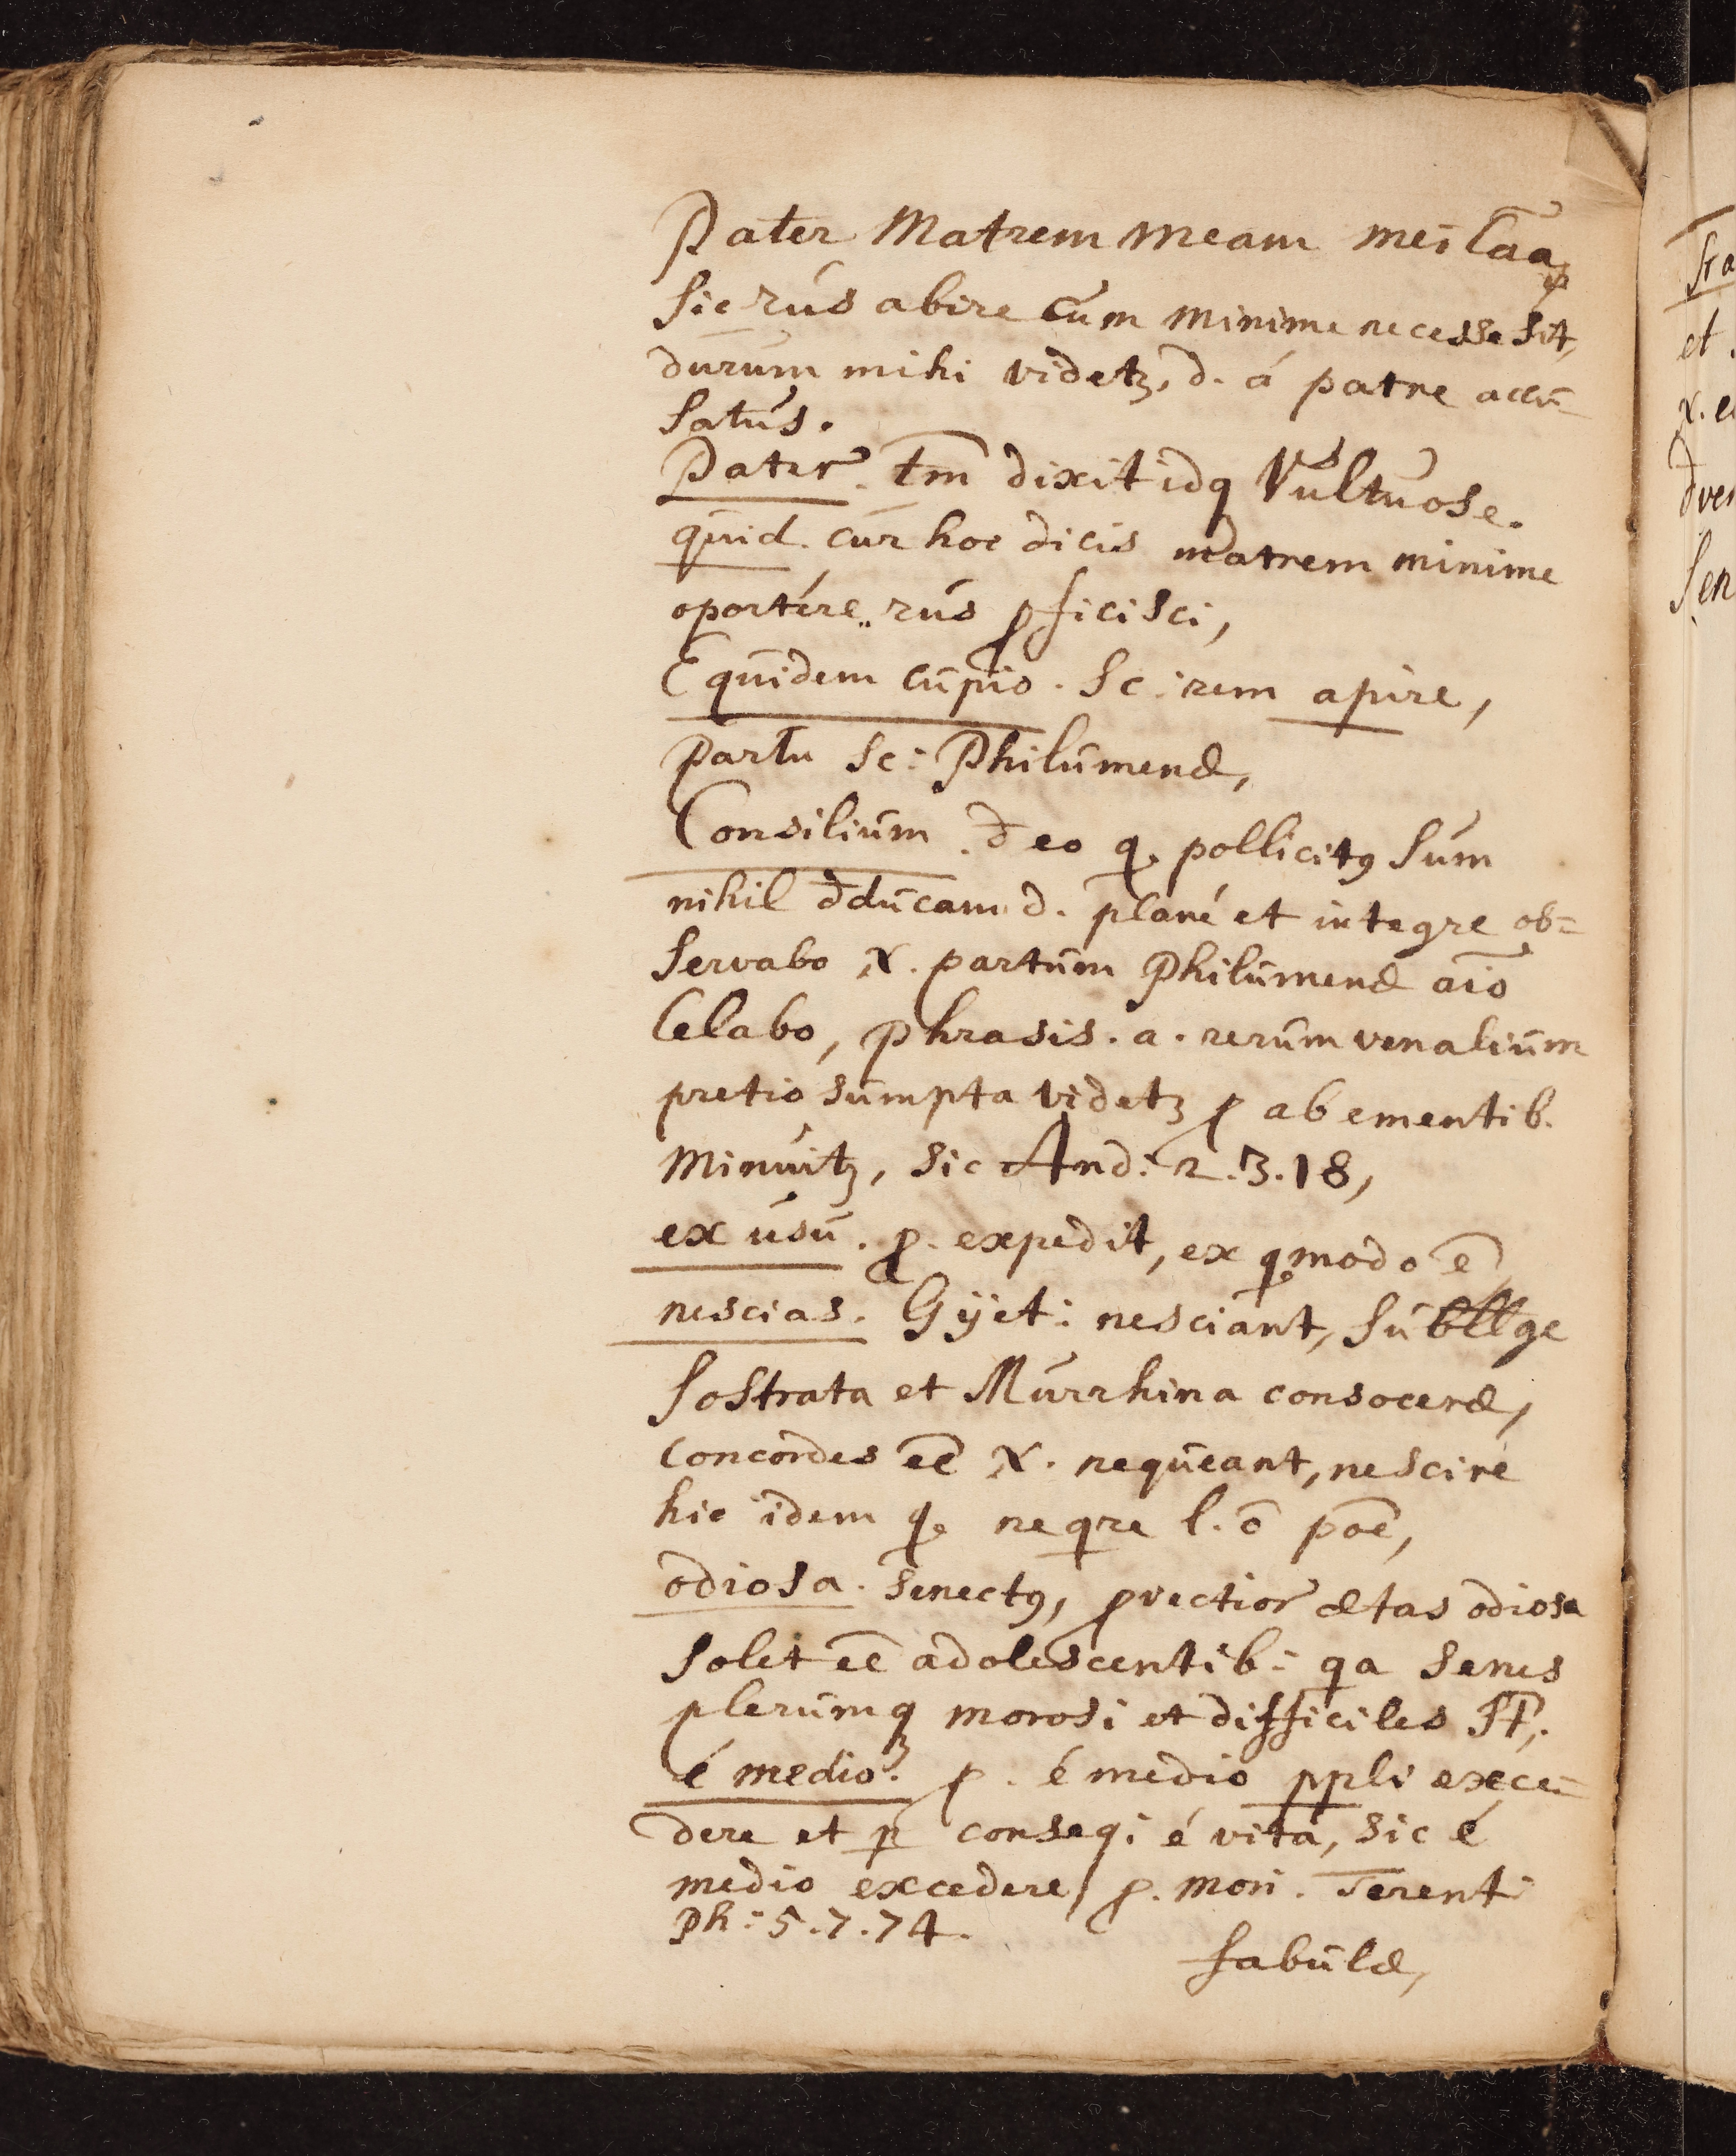 Pater Matrem meam mei Caa
sic rus abire cum minime necesse sit,
durum mihi videtꝫ, d. á patre accu=
satus.
Pater. tm̄ dixit idq Vultuose.
quid. cur hoc dicis matrem minime
oportére rus ꝓficisci,
Equidem cupio. Sc: rem apire,
Partu Sc: Philumenæ,
Consilium. đ eo q. pollicitꝰ sum
nihil đducam d. plané et integre ob=
servabo N. partum Philumenæ aīo
Celabo, Phrasis. a. rerum venalium
pretio sumpta videtꝫ ꝓ ab ementib.
Minuitꝫ, sic And: 2.3.18,
ex usu. ꝓ. expedit, ex q. modo ē
nescias. Gÿet: nesciant, Subllge
Sostrata et Murrhina consoceræ,
Concordes eē N. nequeant, nescire
hic idem q. neqre l. ō poē,
odiosa. Senectꝰ, ꝓvectior ætas odiosa
solet eē adolescentib: qa Senes
plerumqꝫ morosi et difficiles St̄,
é medio. ꝓ. é medio ppli exce=
dere et p conseqi é vitá, sic é
medio excedere, ꝓ. mori. Terenti
Ph: 5.7.74.
fabulæ,
Sra
et
N. e
đve
Sen